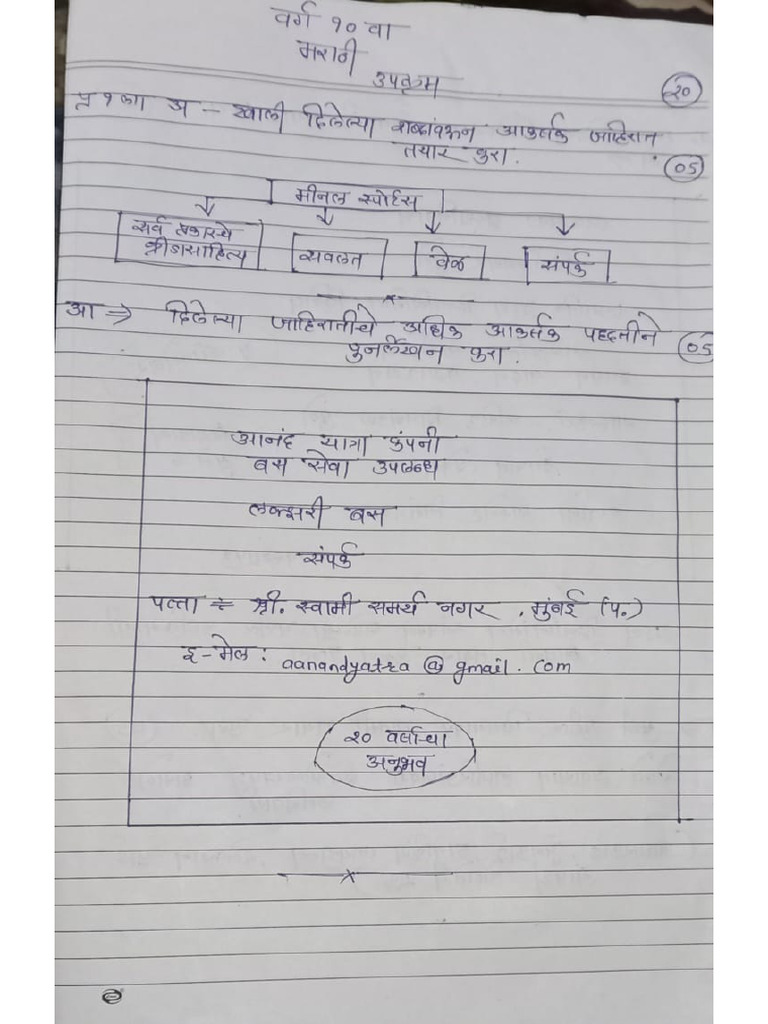 वर्ग १० वा
मराठी
उपक्रम
२०
प्र १ ला अ - खाली दिलेल्या शब्दांवरून आकर्तक जाहिरात
तयार करा.
०५
मीनल स्पोर्टस
सर्व प्रकारचे
क्रीडासाहित्य
सवलत
वेळ
संपर्क
आ ⇒ दिलेल्या जाहिरातीचे अधिक आकर्तक पद्दतीने
पुनर्लेखन करा.
०५
आनंद यात्रा कंपनी
बस सेवा उपलब्ध
लक्सरी बस
संपर्क
पत्ता ÷ श्री. स्वामी समर्थ नगर , मुंबई (प.)
इ-मेल : aanandyatra @ gmail . com
२० वर्लाचा
अनुभव